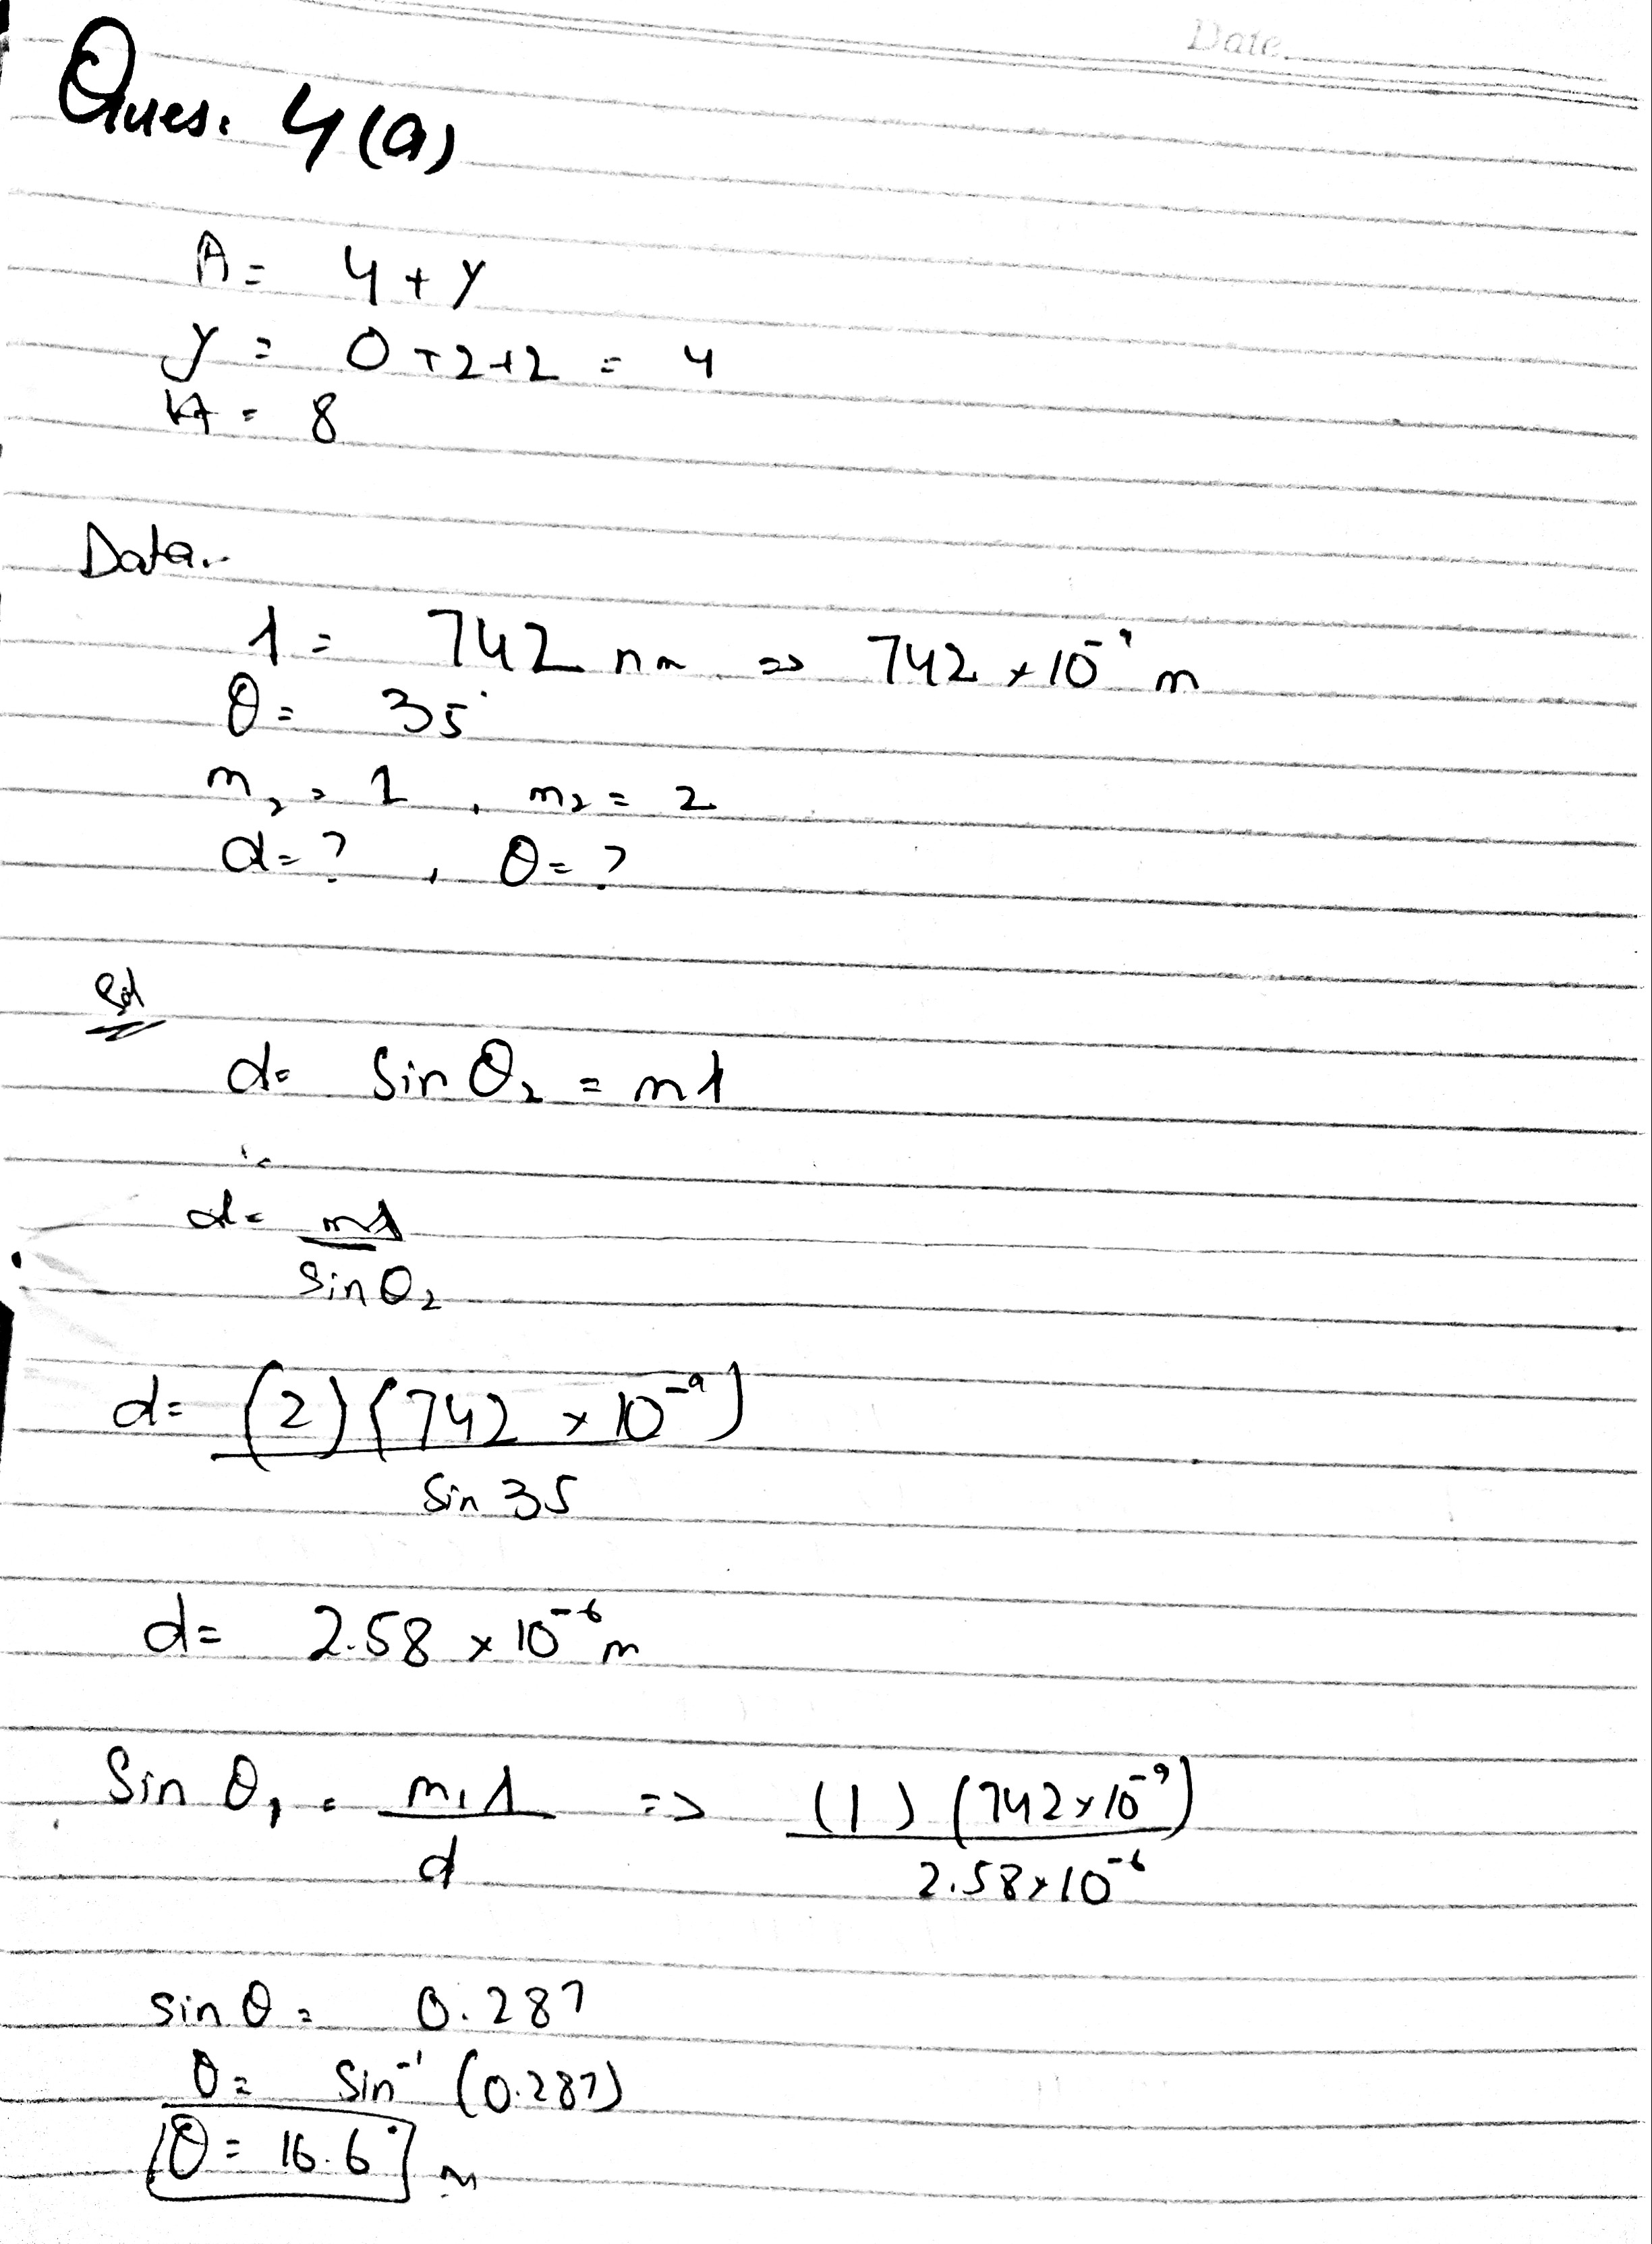 Date.
Ques. 4(a)
A = 4 + y
y = 0 + 2 + 2 = 4
A = 8
Data.
λ = 742 nm => 742 × 10⁻⁹ m
θ = 35°
m₂ = 1 , m₂ = 2
d = ? , θ = ?
Sol
d = Sin θ₂ = mλ
d = mλ
sin θ₂
d = (2)(742 × 10⁻⁹)
Sin 35
d = 2.58 × 10⁻⁶ m
Sin θ₁ = m₁λ => (1)(742×10⁻⁹)
d 2.58×10⁻⁶
sin θ = 0.287
θ = Sin⁻¹ (0.287)
θ = 16.6°